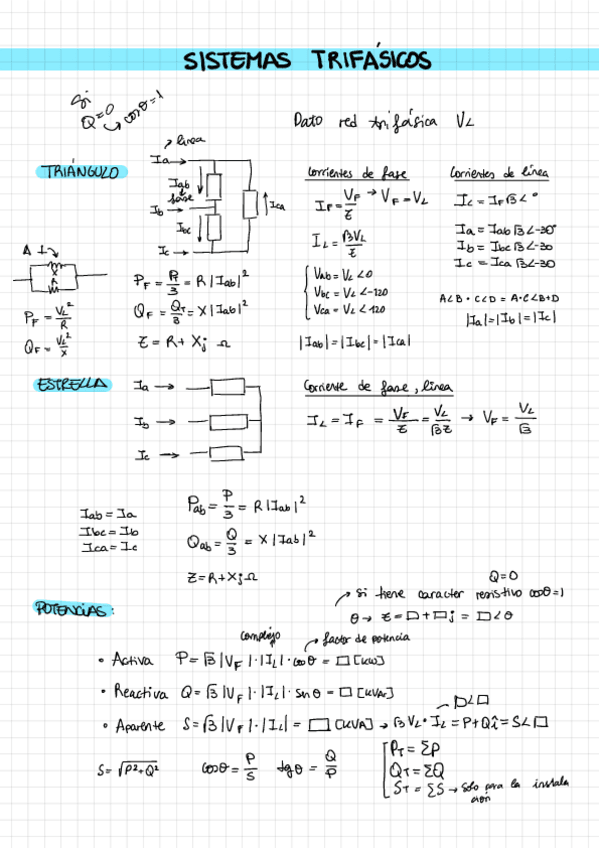 SISTEMAS TRIFÁSICOS
Si
Q=0 → cosθ=1
Dato red trifásica VL
TRIÁNGULO
línea
Ia
Iab
fase
Ib
Ibc
Ic
Ica
Corrientes de fase
IF = VF/Z → VF = VL
IL = √3VL/Z
Vab = VL∠0
Vbc = VL∠-120
Vca = VL∠-120
|Iab|=|Ibc|=|Ica|
Corrientes de línea
IL = IF√3∠°
Ia = Iab√3∠-30°
Ib = Ibc√3∠-30
Ic = Ica√3∠-30
A∠B · C∠D = A·C∠B+D
|Ia|=|Ib|=|Ic|
X
R
PF = VL²/R
QF = VL²/X
QF = QT/3 = X|Iab|²
Z = R+Xj Ω
ESTRELLA
Ia
Ib
Ic
Corriente de fase, línea
IL = IF = VF/Z = VL/√3Z → VF = VL/√3
Iab = Ia
Ibc = Ib
Ica = Ic
Pab = P/3 = R|Iab|²
Qab = Q/3 = X|Iab|²
Z=R+XjΩ
POTENCIAS:
Q=0
si tiene caracter resistivo cosθ=1
θ → Z=□+□j = □∠θ
complejo
factor de potencia
• Activa P=√3|VF|·|IL|·cosθ = □ [kW]
• Reactiva Q=√3|VF|·|IL|·senθ = □ [kVAr]
□∠□
• Aparente S=√3|VF|·|IL| = □ [kVA] → √3VL·IL = P+Qi = S∠□
S=√P²+Q²
cosθ = P/S
tgθ = Q/P
PT = ΣP
QT = ΣQ
ST = ΣS → solo para la instalación